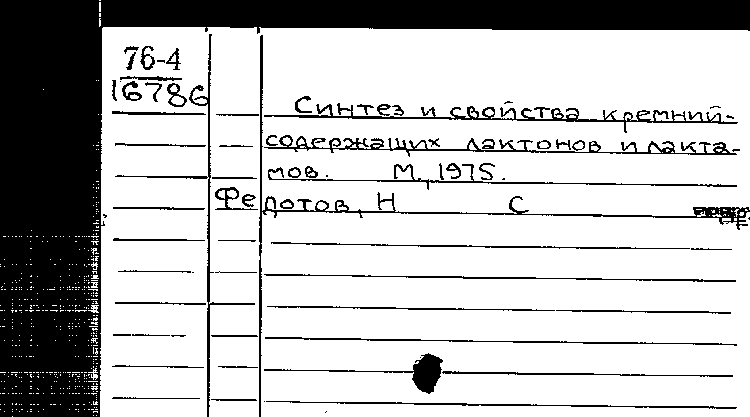 76-4
16786
Синтез и свойства кремний-
содержащих лактонов и лакта-
мов. М., 1975.
Федотов, Н С